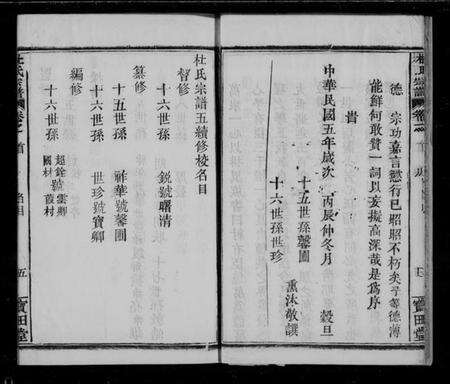 德　宗功嘉言懿行已照照不朽矣予等德薄
能鮮何敢贊一詞以妄擬高深哉是為序
旹
中華民國五年歲次　丙辰仲冬月　穀旦
十五世孫馨圃
十六世孫世珍
熏沐敬譔
杜氏宗譜五續修校名目
督修
十六世孫　銳號曙清
纂修
十五世孫　祚華號馨圃
十六世孫　世珍號寶卿
編修
十六世孫
超銓號雲卿
國材　蔎村
杜氏宗譜
卷之首
名目
五
寶田堂